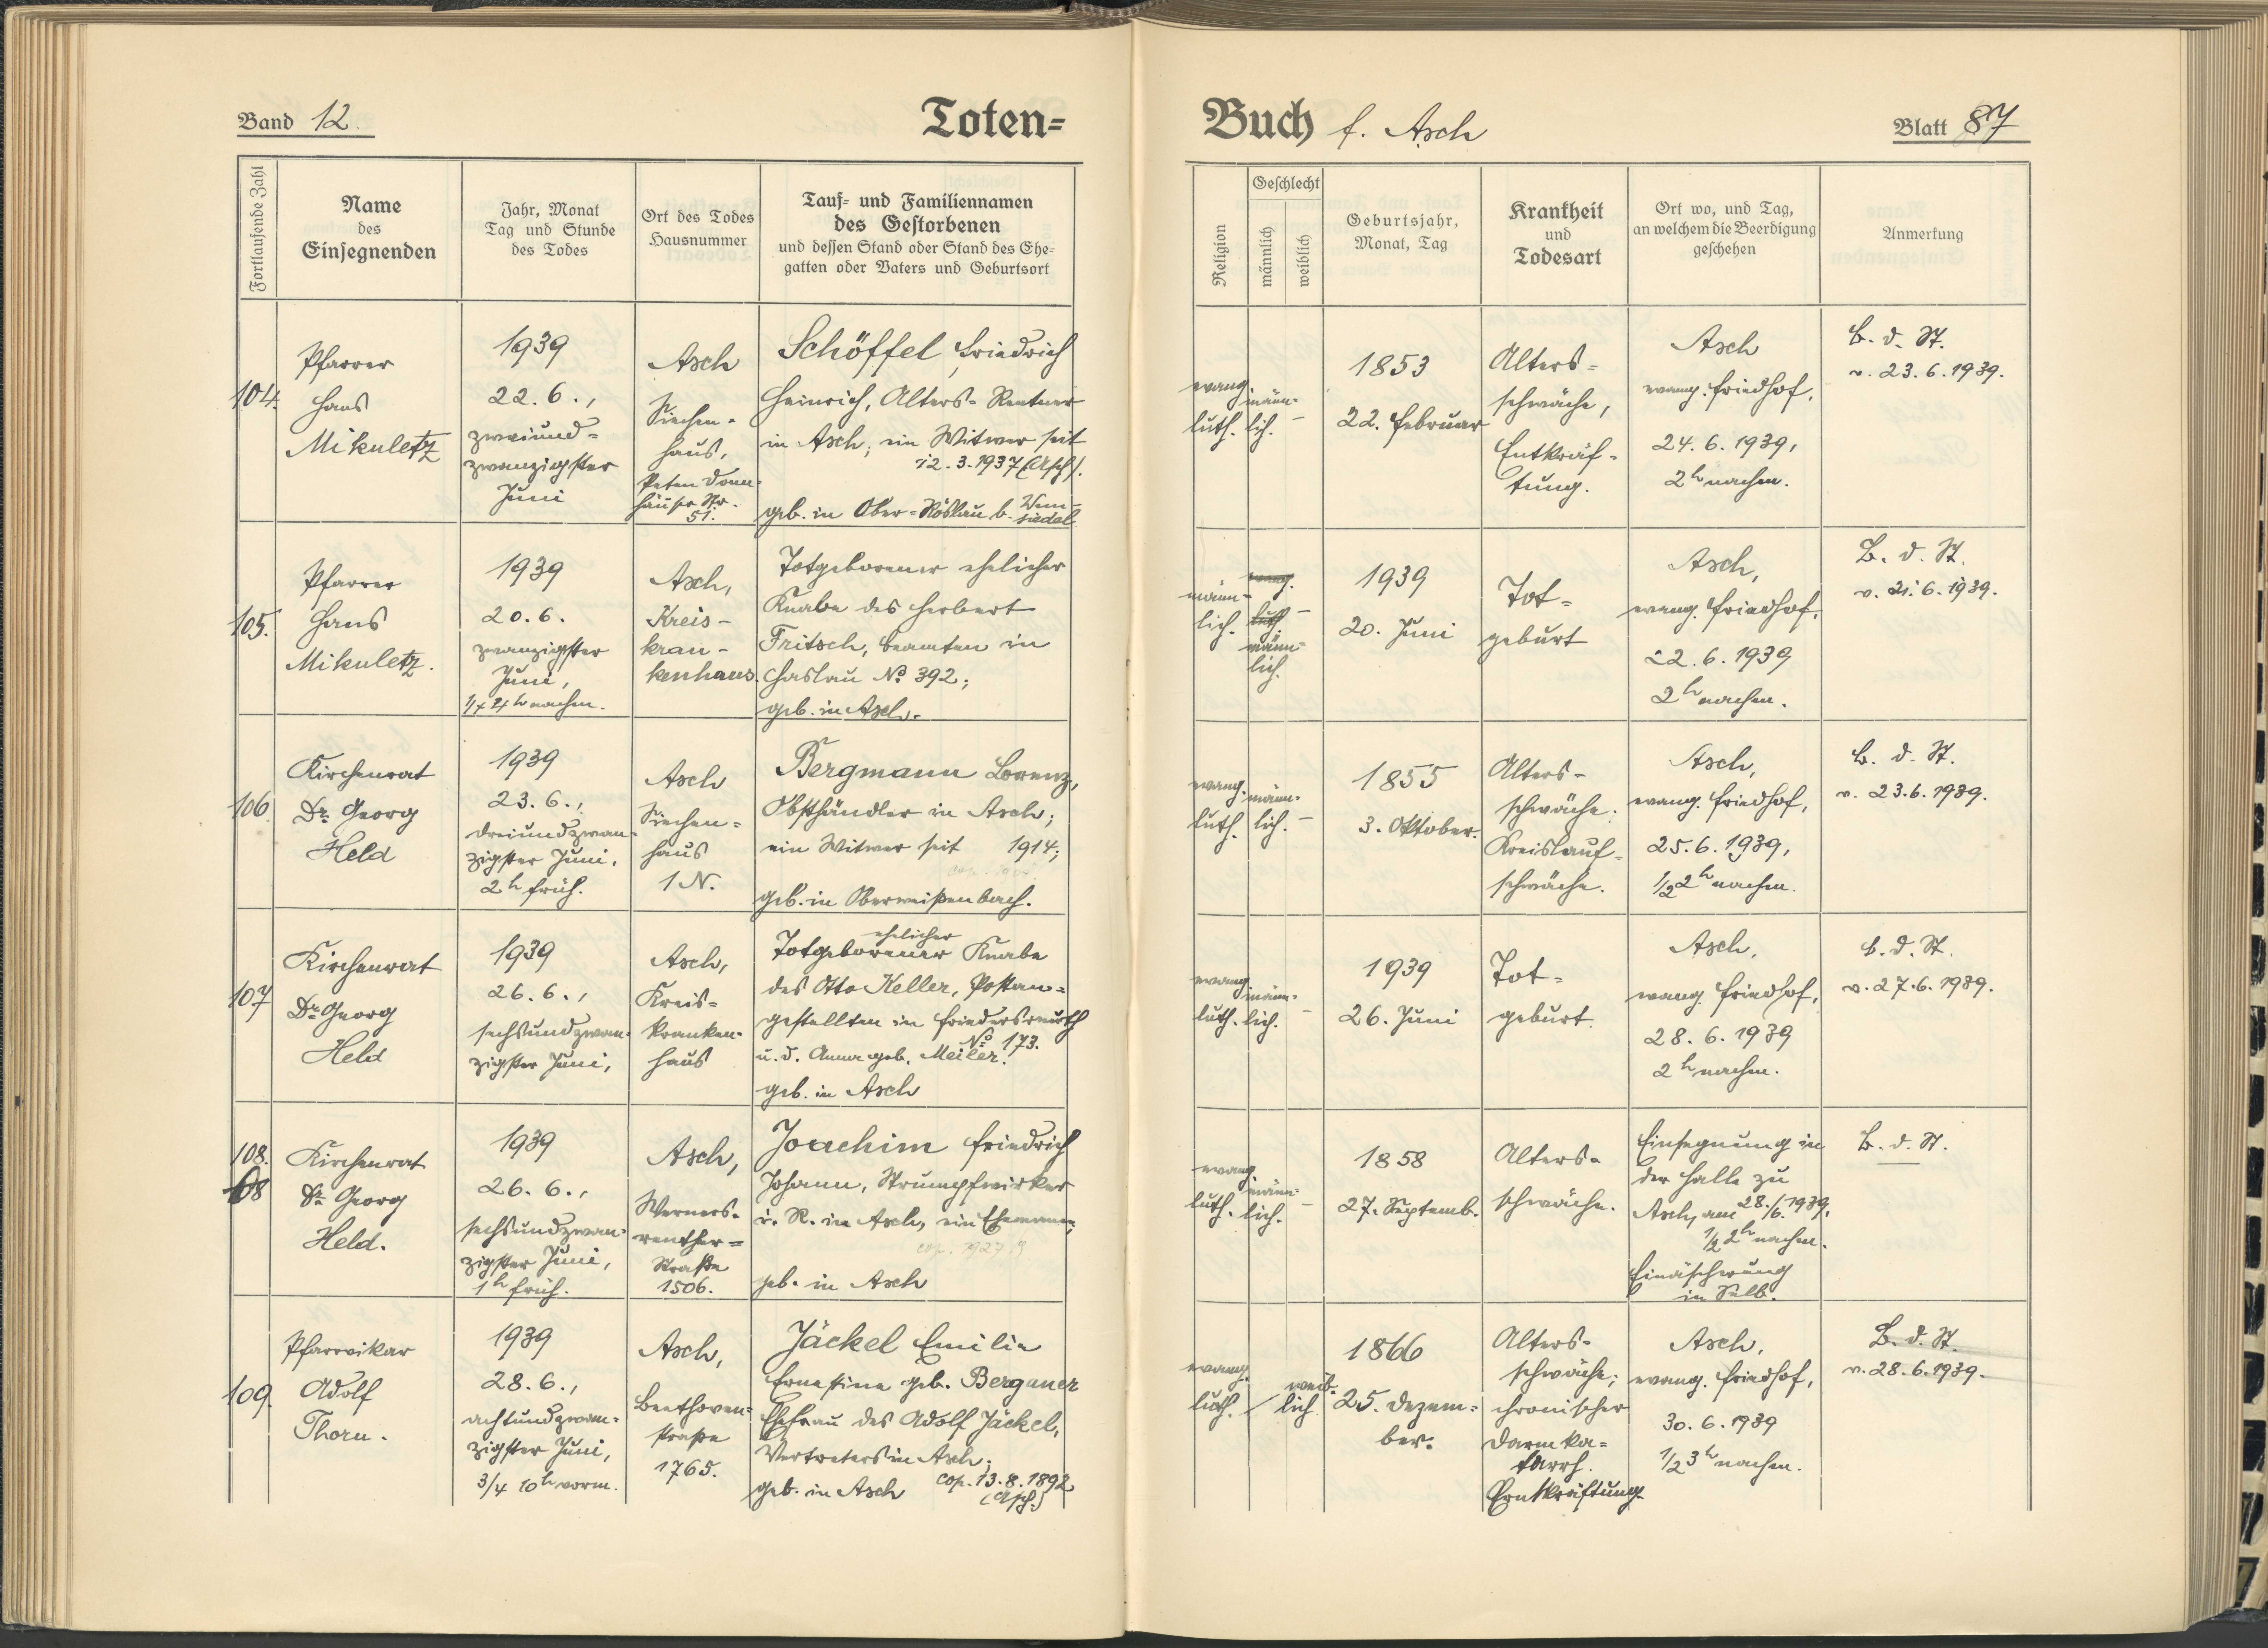 Band 12.
Toten=
Buch f. Asch
Blatt 87
Fortlaufende Zahl
Name
des
Einsegnenden
Jahr, Monat
Tag und Stunde
des Todes
Ort des Todes
Hausnummer
Tauf= und Familiennamen
des Gestorbenen
und dessen Stand oder Stand des Ehe=
gatten oder Vaters und Geburtsort
Religion
Geschlecht
männlich
weiblich
Geburtsjahr,
Monat, Tag
Krankheit
und
Todesart
Ort wo, und Tag,
an welchem die Beerdigung
geschehen
Anmerkung
104.
Pfarrer
Hans
Mikuletz
1939
22. 6.,
zweiund=
zwanzigster
Juni
Asch
Siechen=
haus,
Peter Donn=
häuser Str.
51.
Schöffel, Friedrich
Heinrich, Alters=Rentner
in Asch; ein Witwer seit
12. 3. 1937 (Asch).
geb. in Ober=Röslau b. Wun=
siedel
evang.
luth.
männ=
lich.
–
1853
22. Februar
Alters=
schwäche,
Entkräf=
tung.
Asch
evang. Friedhof,
24. 6. 1939,
2h nachm.
B. d. St.
v. 23. 6. 1939.
105.
Pfarrer
Hans
Mikuletz.
1939
20. 6.
zwanzigster
Juni,
1/4 4h nachm.
Asch,
Kreis=
kran=
kenhaus.
Totgeborener ehelicher
Knabe des Herbert
Fritsch, Beamten in
Haslau No 392;
geb. in Asch.
männ=
lich.
evang.
luth
männ=
lich.
–
1939
20. Juni
Tot=
geburt
Asch,
evang. Friedhof,
22. 6. 1939
2h nachm.
B. d. St.
v. 21. 6. 1939.
106.
Kirchenrat
Dr. Georg
Held
1939
23. 6.,
dreiundzwan=
zigster Juni,
2h früh.
Asch
Siechen=
haus
1 N.
Bergmann Lorenz,
Obsthändler in Asch;
ein Witwer seit 1914;
geb. in Oberweißenbach.
evang.
luth.
männ=
lich.
–
1855
3. Oktober.
Alters=
schwäche;
Kreislauf=
schwäche.
Asch,
evang. Friedhof,
25. 6. 1939,
1/2 2h nachm.
B. d. St.
v. 23. 6. 1939.
107
Kirchenrat
Dr. Georg
Held
1939
26. 6.,
sechsundzwan=
zigster Juni,
Asch,
Kreis=
kranken=
haus
ehelicher
Totgeborener Knabe
des Otto Keller, Postan=
gestellten in Friedersreuth
No 173.
u. d. Anna geb. Meiler.
geb. in Asch
evang.
luth.
männ=
lich.
–
1939
26. Juni
Tot=
geburt.
Asch,
evang. Friedhof,
28. 6. 1939
2h nachm.
B. d. St.
v. 27. 6. 1939.
108.
68
Kirchenrat
Dr. Georg
Held.
1939
26. 6.,
sechsundzwan=
zigster Juni,
1h früh.
Asch,
Werners=
reuther=
Straße
1506.
Joachim Friedrich
Johann, Strumpfwirker
i. R. in Asch, ein Ehemann;
cop. 1927
geb. in Asch
evang.
luth.
männ=
lich.
–
1858
27. Septemb.
Alters=
schwäche.
Einsegnung in
der Halle zu
Asch, am 28./6. 1939,
1/2 2h nachm.
Einäscherung
in Selb.
B. d. St.
109.
Pfarrvikar
Adolf
Thorn.
1939
28. 6.,
achtundzwan=
zigster Juni,
3/4 10h vorm.
Asch,
Beethoven=
straße
1765.
Jäckel Emilie
Ernestine geb. Berganer
Ehefrau des Adolf Jäckel,
Vertreters in Asch;
geb. in Asch cop. 13. 8. 1892
(Asch)
evang.
luth.
weib=
lich
1866
25. Dezem=
ber.
Alters=
schwäche;
chronischer
Darmka=
tarrh.
Entkräftung.
Asch,
evang. Friedhof,
30. 6. 1939
1/2 3h nachm.
B. d. St.
v. 28. 6. 1939.